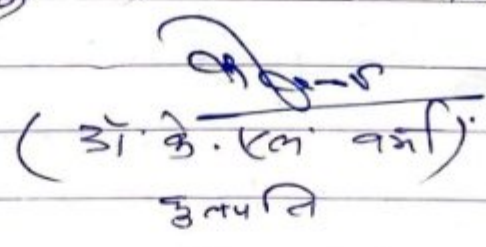 (डॉ. के. एल. वर्मा)
कुलपति